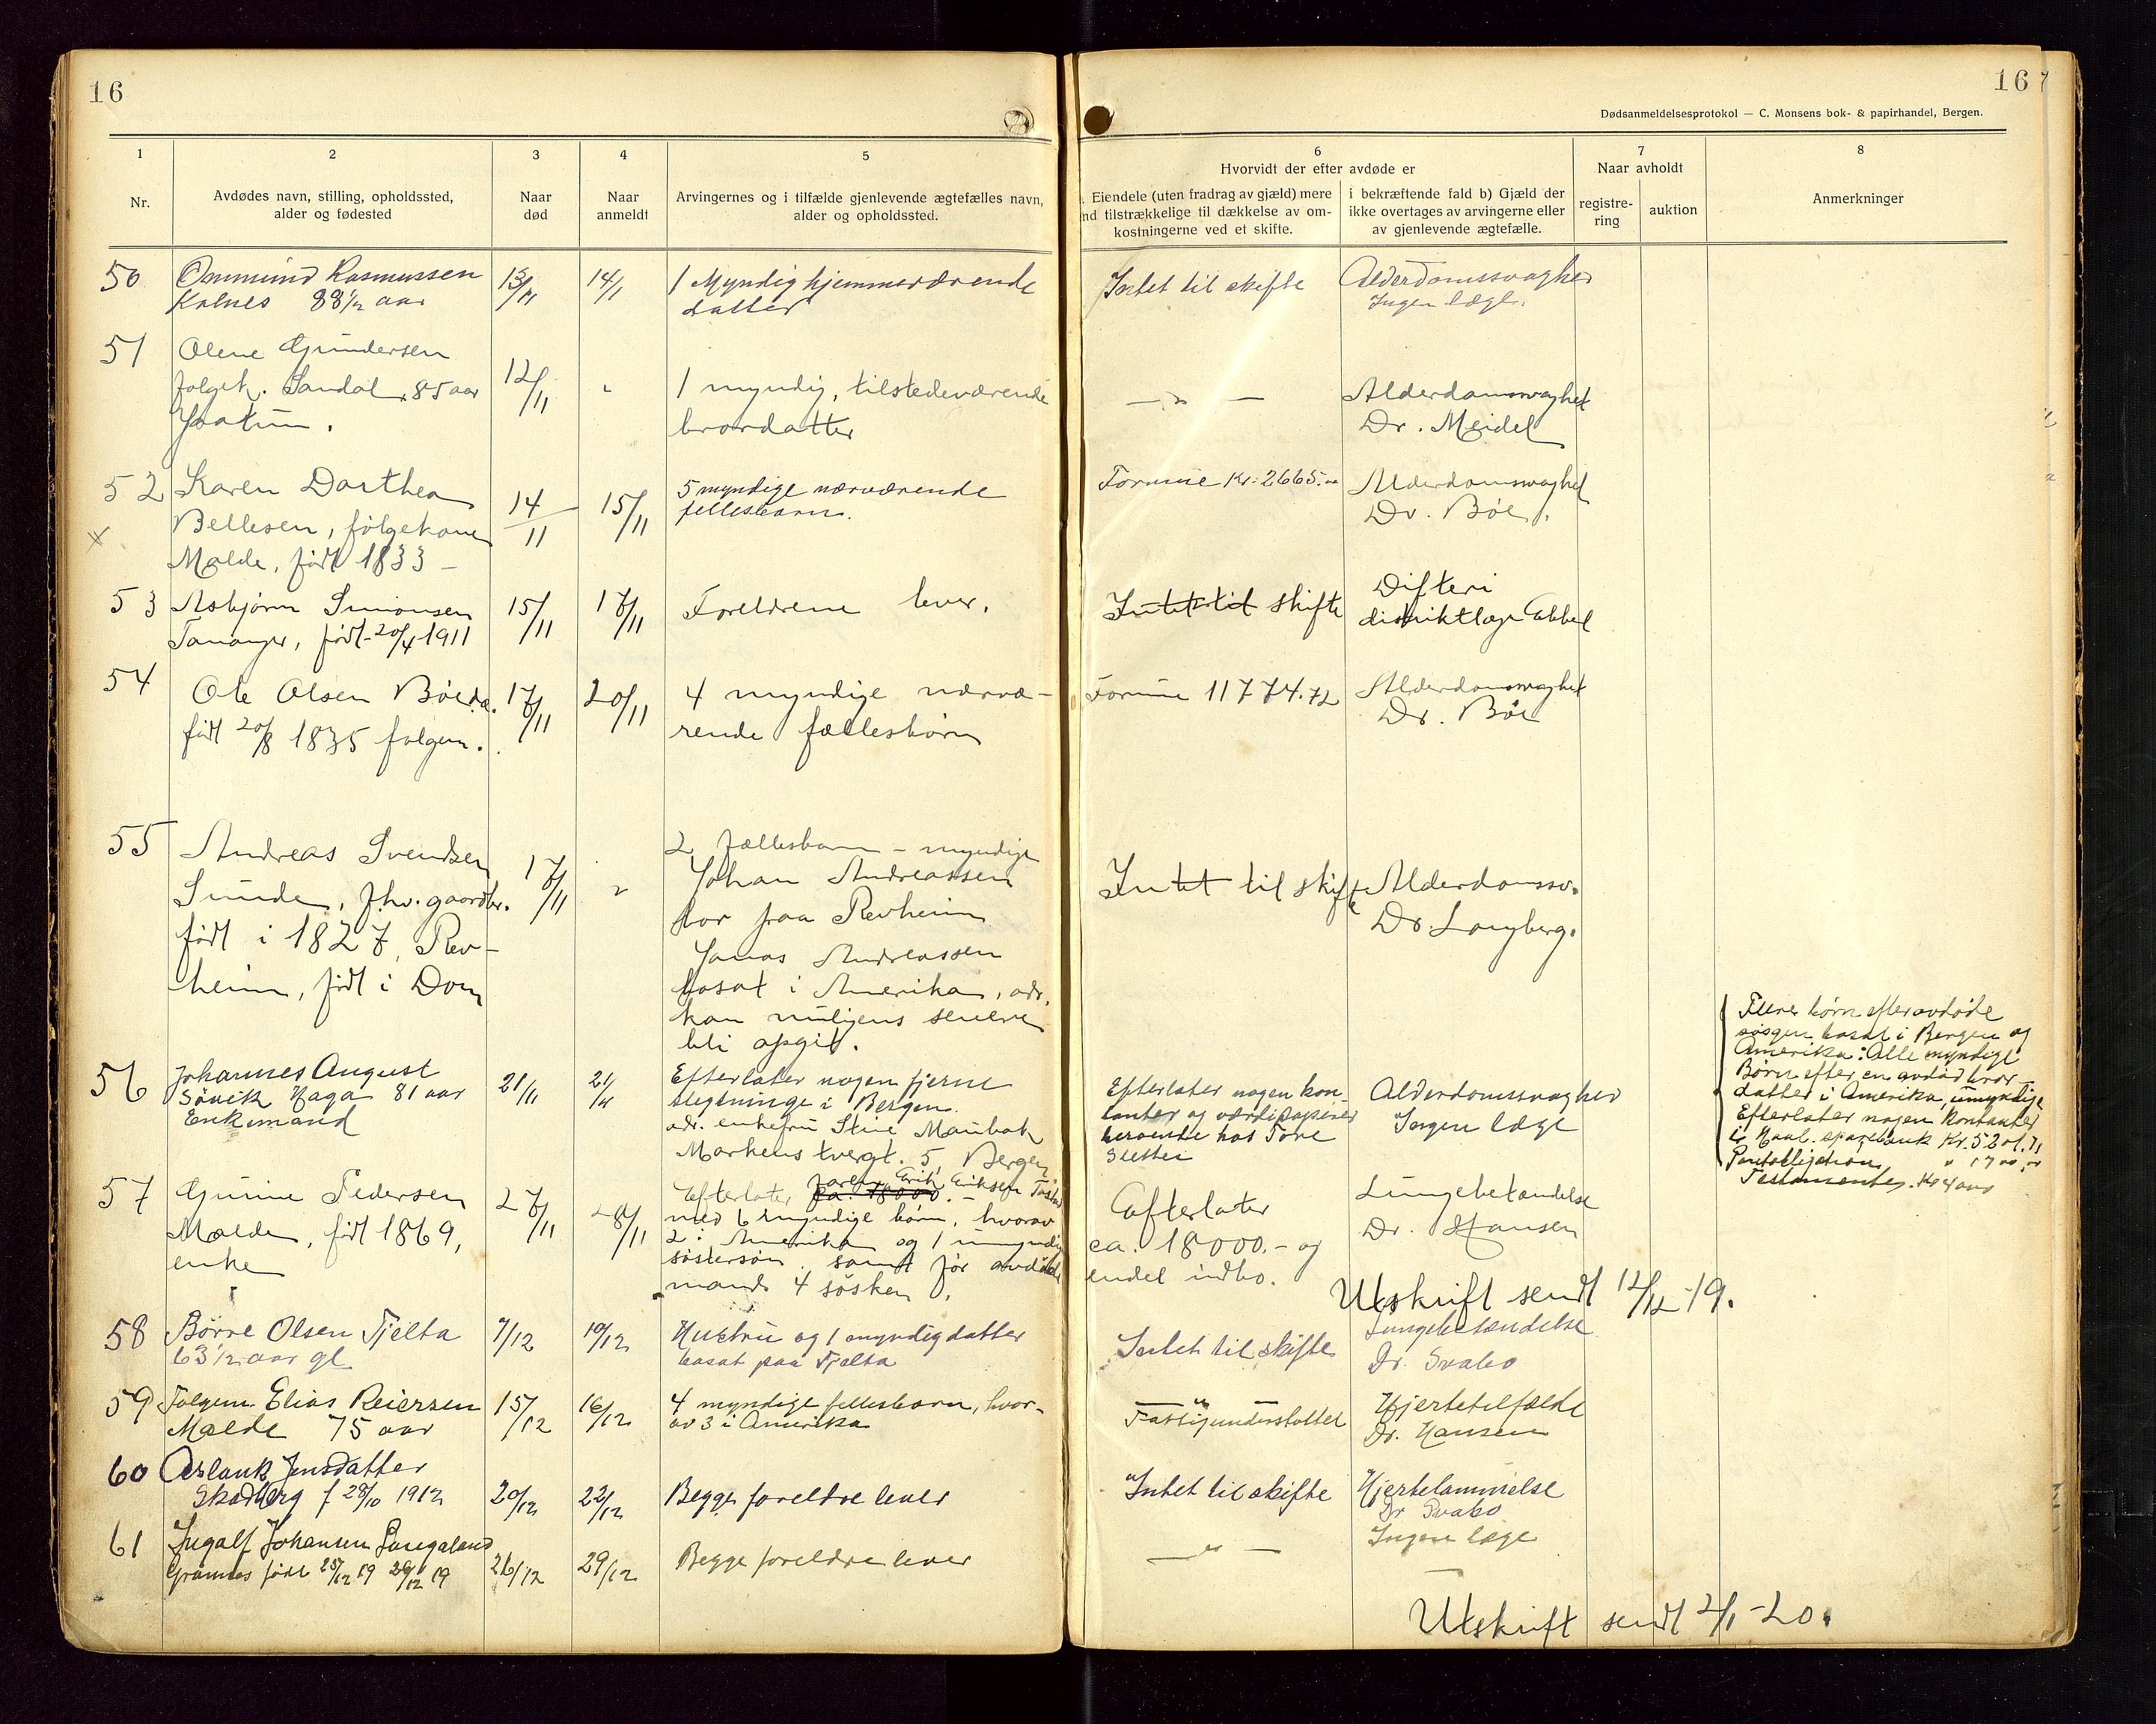 16
16
Dødsanmeldelsesprotokol — C. Monsens bok- & papirhandel, Bergen.
1
Nr.
2
Avdødes navn, stilling, opholdssted,
alder og fødested
3
Naar
død
4
Naar
anmeldt
5
Arvingernes og i tilfælde gjenlevende ægtefælles navn,
alder og opholdssted.
6
Hvorvidt der efter avdøde er
Eiendele (uten fradrag av gjæld) mere
nd tilstrækkelige til dækkelse av om-
kostningerne ved et skifte.
i bekræftende fald b) Gjæld der
ikke overtages av arvingerne eller
av gjenlevende ægtefælle.
7
Naar avholdt
registre-
ring
auktion
8
Anmerkninger
50
Ommund Rasmussen
Kolnes 88½ aar
13/11
14/1
1 Myndig hjemmeværende
datter
Intet til skifte
Alderdomssvaghed
Ingen læge.
51
Olene Gundersen
folgek. Sandal, 85 aar
12/11
"
1 myndig, tilstedeværende
brordatter
— " —
Alderdomsvaghet
Dr. Meidel
52
Karen Dorthea
Bellesen, følgekone
Malde, født 1833 –
14/11
15/11
5 myndige nærværende
fellesbarn.
Formue Kr. 2665.
Alderdomsvaghet
Dr. Böe.
53
Asbjørn Simonsen
Tananger, født 20/4 1911
15/11
17/11
Foreldrene lever.
Intet til skifte
Difteri
distriktlæge Ebbel
54
Ole Olsen Böe
født 20/8 1835 folgem.
17/11
20/11
4 myndige nærvæ-
rende fællesbørn
Formue 11774.72
Alderdomsvaghet
Dr. Böe
55
Andreas Svendsen
Sunde, fhv. gaardbr.
født i 1827, Rev-
heim, født i Dom
17/11
"
2 Fællesbarn – myndige
Johan Andreassen
bor paa Revheim
Jonas Andreassen
bosat i Amerika, adr.
kan muligens senere
bli opgit.
Intet til skifte
Alderdomssv.
Dr. Longberg.
56
Johannes August
Sövik Haga 81 aar
Enkemand
21/11
21/11
Efterlater nogen fjerne
slegtninge i Bergen.
adr. enkefru Stine Maubak
Markens tvergt. 5, Bergen
Efterlater nogen kon-
tanter og værdipapirer
beroende hos Tore
Slettei
Alderdomssvaghed
Ingen læge
Flere børn efter avdøde
søsgen bosat i Bergen og
Amerika: Alle myndige
Børn efter en avdød bror-
datter i Amerika, umyndige
Efterlater nogen Kontanter
i Haal. sparebank Kr. 5201.71
Pantobligation " 1700,-
57
Gurine Pedersen
Malde, født 1869,
enke
27/11
28/11
Efterlater faren Erik Eriksen
ca. 18000. –
med 6 myndige børn, hvorav
2 i Amerika og 1 umyndig
søstersøn, samt før avdøde
mands 4 søsken.
Efterlater
ca. 18000.– og
endel indbo.
Lungebetændelse
Dr. Hansen
Utskrift sendt 12/12 -19.
58
Børre Olsen Tjelta
63½ aar gl
7/12
10/12
Hustru og 1 myndig datter
bosat paa Tjelta
Intet til skifte
Lungebetændelse
Dr. Svabo
59
Folgem Elias Reiersen
Malde 75 aar
15/12
16/12
4 myndige fellesbarn, hvor-
av 3 i Amerika
— " —
Fattigunderstøttet
Hjertetilfælde
Dr. Hansen
60
Aslauk Jensdatter
Skadberg f 28/10 1912
20/12
22/12
Begge foreldre lever
Intet til skifte
Hjertelammelse
Dr Svabo
61
Ingolf Johansen
Grannes født 25/12 19 26/12 19
26/12
29/12
Begge foreldre lever
— " —
Ingen læge
Utskrift sendt 2/1 -20.